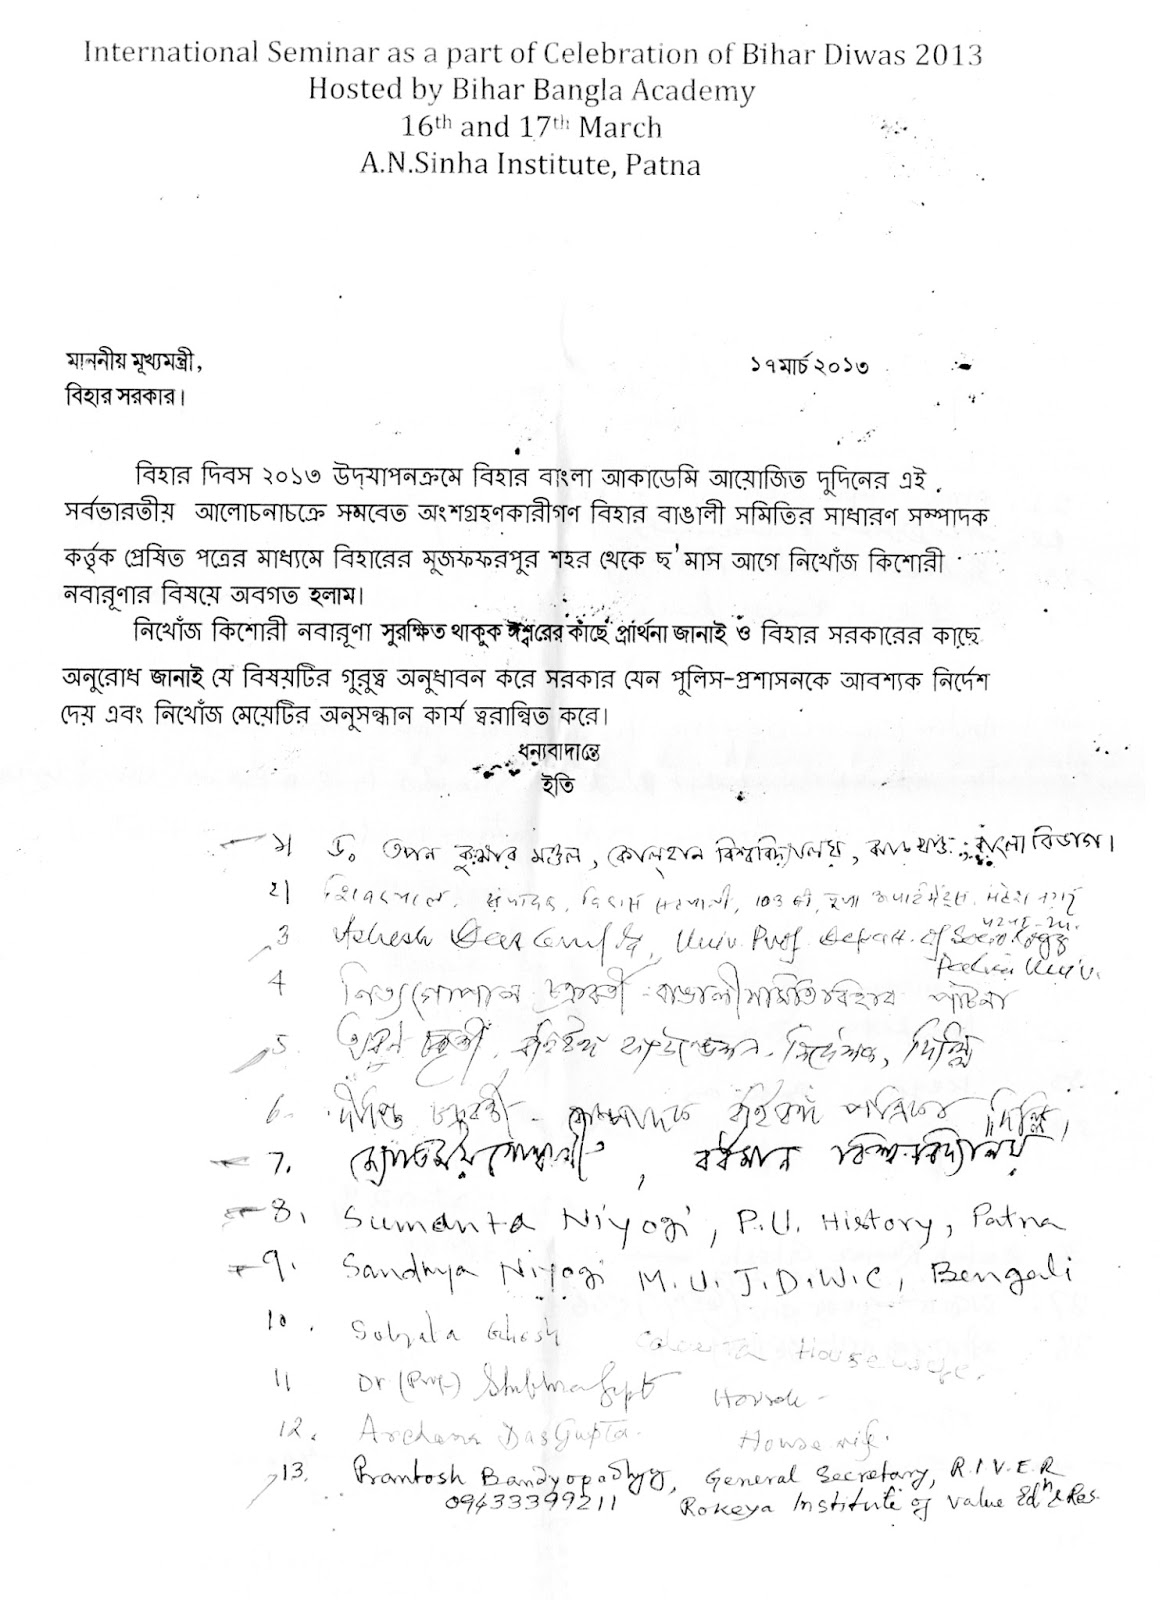 International Seminar as a part of Celebration of Bihar Diwas 2013
Hosted by Bihar Bangla Academy
16th and 17th March
A.N.Sinha Institute, Patna
মাননীয় মূখ্যমন্ত্রী,
১৭মার্চ ২০১৩
বিহার সরকার।
বিহার দিবস ২০১৩ উদ্‌যাপনক্রমে বিহার বাংলা আকাডেমি আয়োজিত দুদিনের এই
সর্বভারতীয় আলোচনাচক্রে সমবেত অংশগ্রহণকারীগণ বিহার বাঙালী সমিতির সাধারণ সম্পাদক
কর্ত্তৃক প্রেষিত পত্রের মাধ্যমে বিহারের মুজফফরপুর শহর থেকে ছ'মাস আগে নিখোঁজ কিশোরী
নবারূণার বিষয়ে অবগত হলাম।
নিখোঁজ কিশোরী নবারূণা সুরক্ষিত থাকুক ঈশ্বরের কাছে প্রার্থনা জানাই ও বিহার সরকারের কাছে
অনুরোধ জানাই যে বিষয়টির গুরুত্ব অনুধাবন করে সরকার যেন পুলিস-প্রশাসনকে আবশ্যক নির্দেশ
দেয় এবং নিখোঁজ মেয়েটির অনুসন্ধান কার্য ত্বরান্বিত করে।
ধন্যবাদান্তে
ইতি
১। ড. তপন কুমার মণ্ডল, কোলহান বিশ্ববিদ্যালয়, ঝাড়খণ্ড, বাংলা বিভাগ।
২।
3 Univ. Prof. Depart. of Sociology
Patna Univ.
4 নিত্যগোপাল চক্রবর্তী - বাঙালী সমিতি বিহার পাটনা
5. চক্রবর্তী, বহির্বঙ্গ নির্দেশক, দিল্লি
6. দীপ্তি চক্রবর্তী - বহির্বঙ্গ দিল্লি
7. , বর্ধমান বিশ্ববিদ্যালয়
8. Sumanta Niyogi, P.U. History, Patna
9. Sandhya Niyogi M.U. J.D.W.C, Bengali
10. Sujata Ghosh Calcutta Housewife.
11 Dr (Prof.)
12. Archana DasGupta. Housewife.
13. Prantosh Bandyopadhyay, General Secretary, R.I.V.E.R
09433399211 Rokeya Institute of Value Edn & Res.